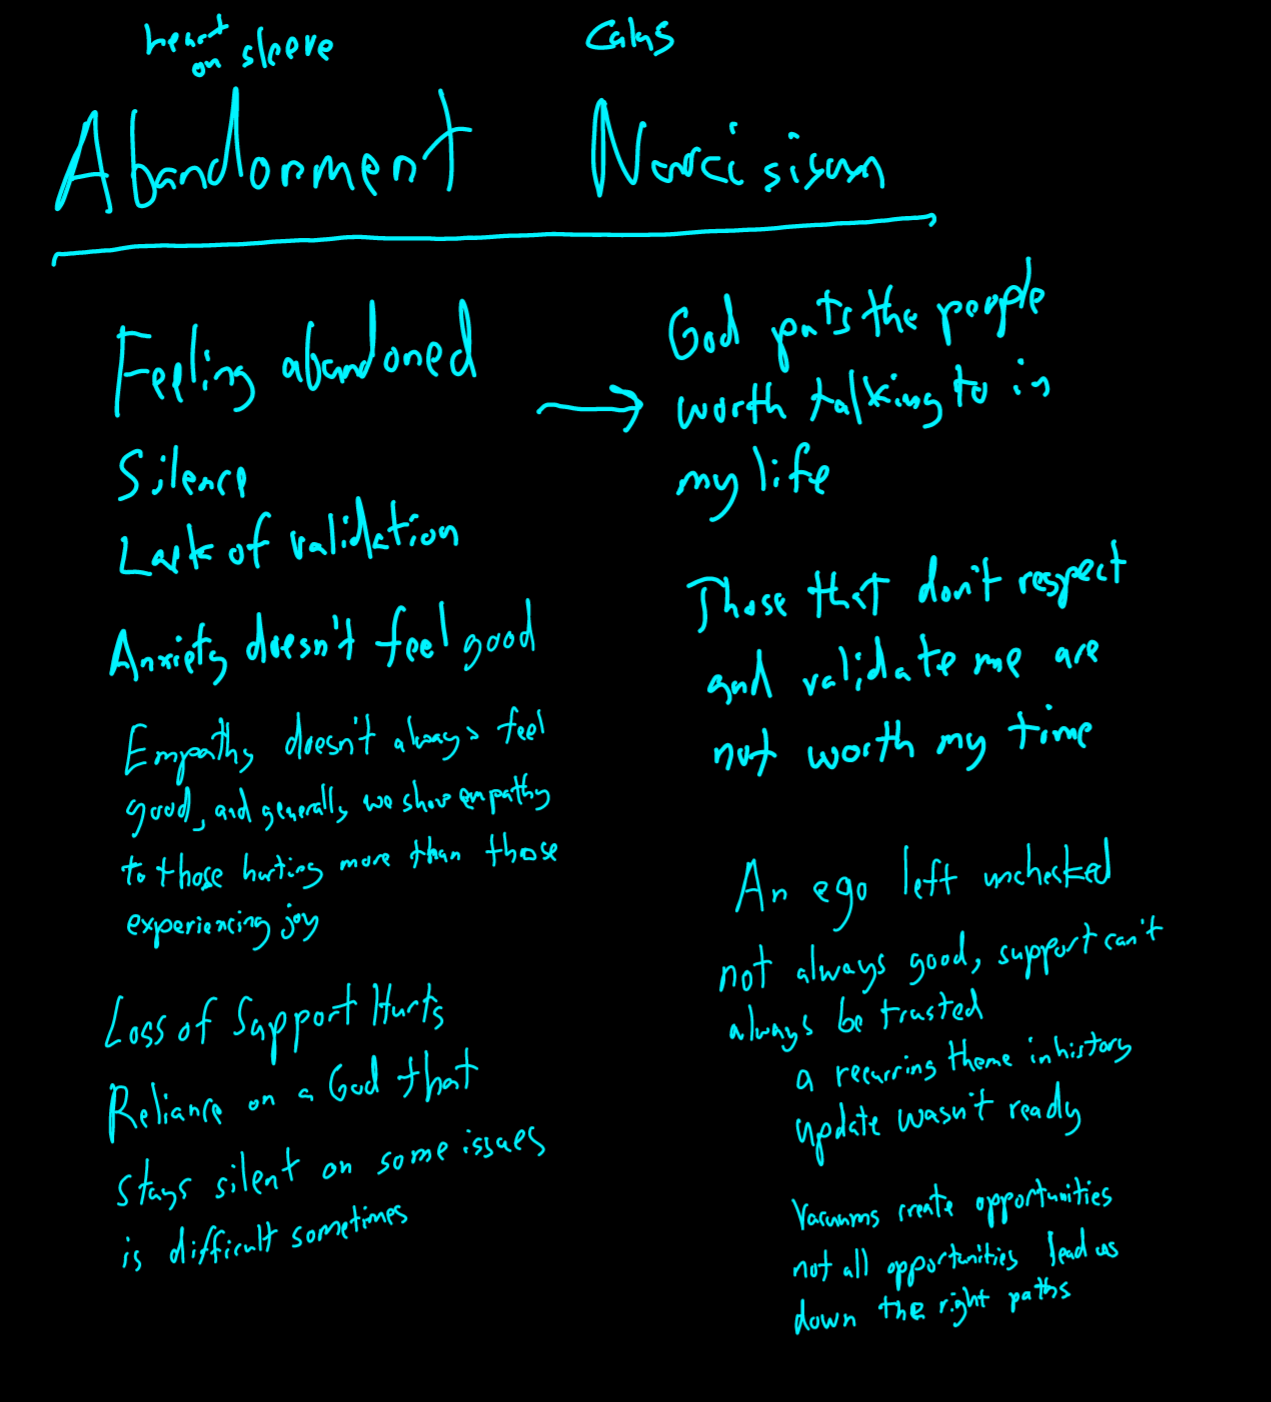 heart
on sleeve
Calus
Abandonment
Narcisisum
Feeling abandoned
Silence
Lack of validation
Anxiety doesn't feel good
Empathy doesn't always feel
good, and generally we show empathy
to those hurting more than those
experiencing joy
Loss of Support Hurts
Reliance on a God that
stays silent on some issues
is difficult sometimes
God puts the people
worth talking to in
my life
Those that don't respect
and validate me are
not worth my time
An ego left unchecked
not always good, support can't
always be trusted
a recurring theme in history
update wasn't ready
Vacuums create opportunities
not all opportunities lead us
down the right paths